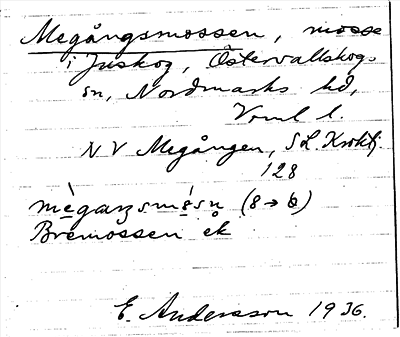 Megångsmossen, mosse
i Juskog, Östervallskog
sn, Nordmarks hd,
Vrml l.
NV Megången, SL. Krokfj.
128
(8→6)
Bremossen ek
E. Andersson 1936.